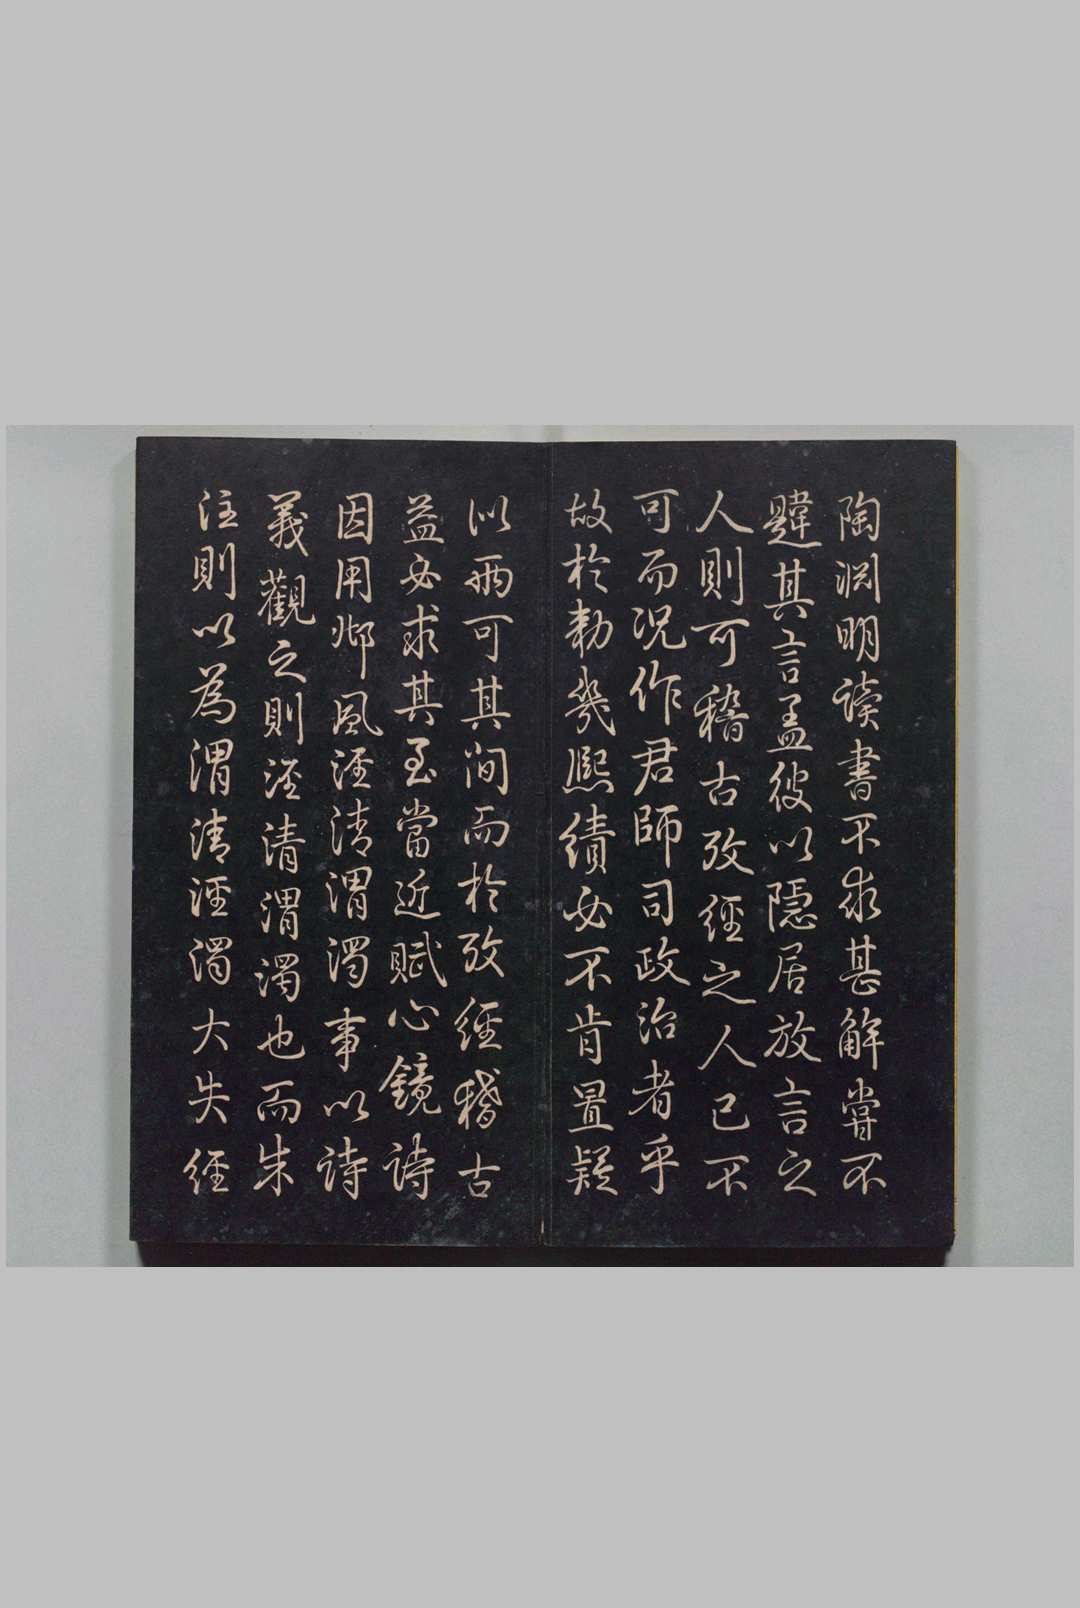 陶渊明读書不求甚解嘗不
韙其言盖彼以隱居放言之
人則可稽古攷經之人已不
可而况作君師司政治者乎
故於勅幾熙績必不肯置疑
似兩可其间而於攷經稽古
益必求其至當近賦心鏡詩
因用邶風涇清渭濁事以詩
義觀之則涇清渭濁也而朱
注則以為渭清涇濁大失經